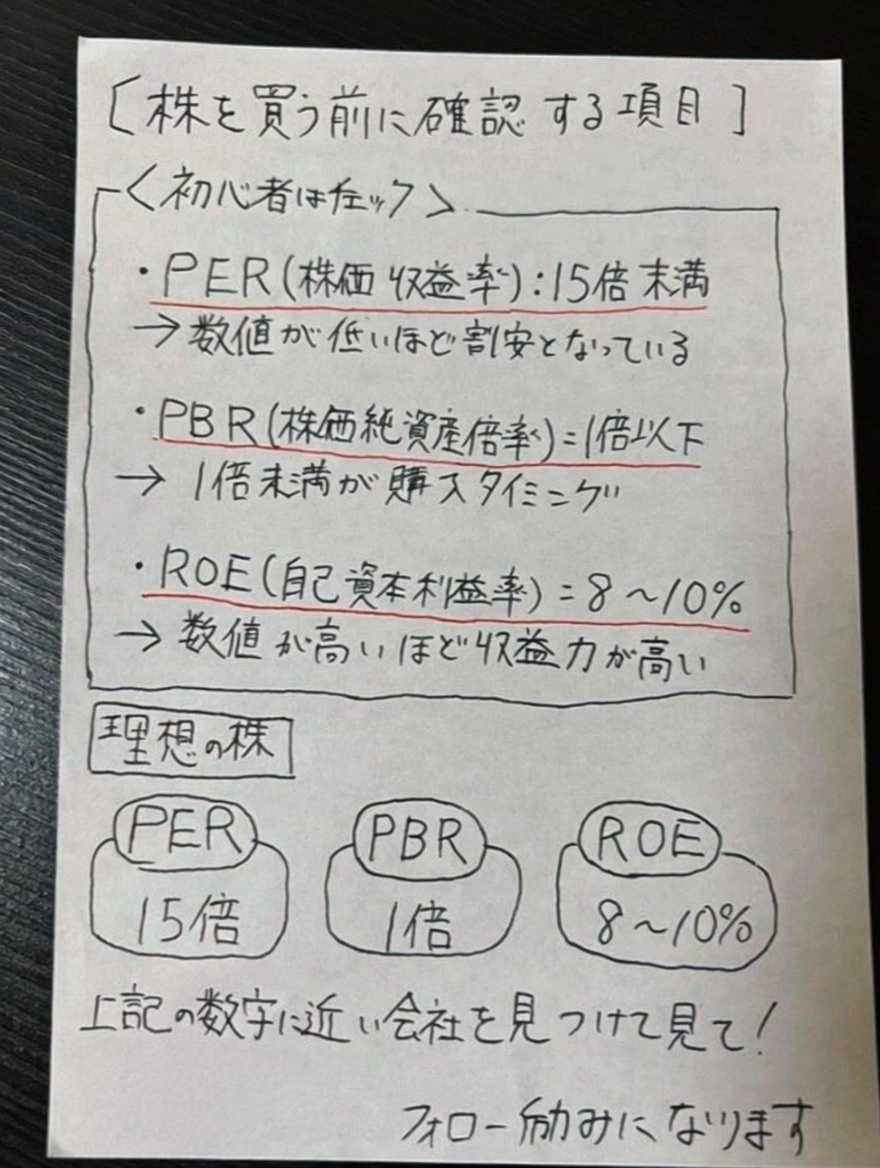 [株を買う前に確認する項目]
<初心者はチェック>
・PER(株価収益率):15倍末満
→数値が低いほど割安となっている
・PBR(株価純資産倍率)=1倍以下
→1倍末満が購入タイミニグ
・ROE(自己資本利益率)=8~10%
→数値が高いほど収益力が高い
理想の株
PER PBR ROE
15倍 1倍 8~10%
上記の数字に近い会社を見つけて見て!
フォロー励みになります